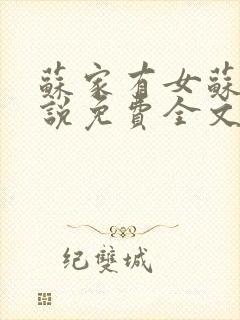 蘇家有女蘇
說免費全文
纪雙城